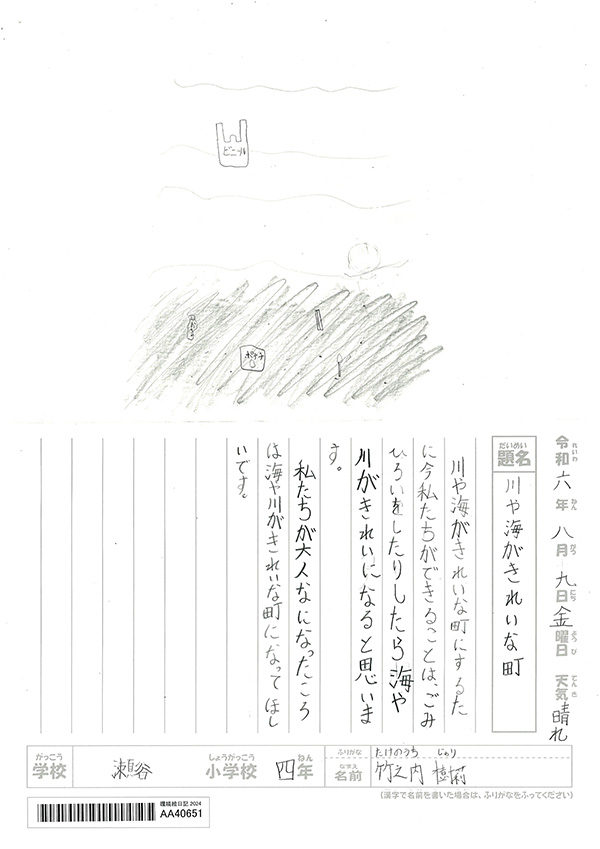 ビニール
令和六年八月九日金曜日 天気晴れ
れいわ ねん がつ にち ようび てんき
だいめい
題名 川や海がきれいな町
川や海がきれいな町にするた
に今私たちができることは、ごみ
ひろいをしたりしたら海や
川がきれいになると思いま
す。
私たちが大人なになったころ
は海や川がきれいな町になってほし
いです。
がっこう しょうがっこう ねん
学校 瀬谷 小学校 四年
ふりがな たけのうち じゅり
なまえ
名前 竹之内 樹莉
(漢字で名前を書いた場合は、ふりがなをふってください)
環境絵日記 2024
AA40651